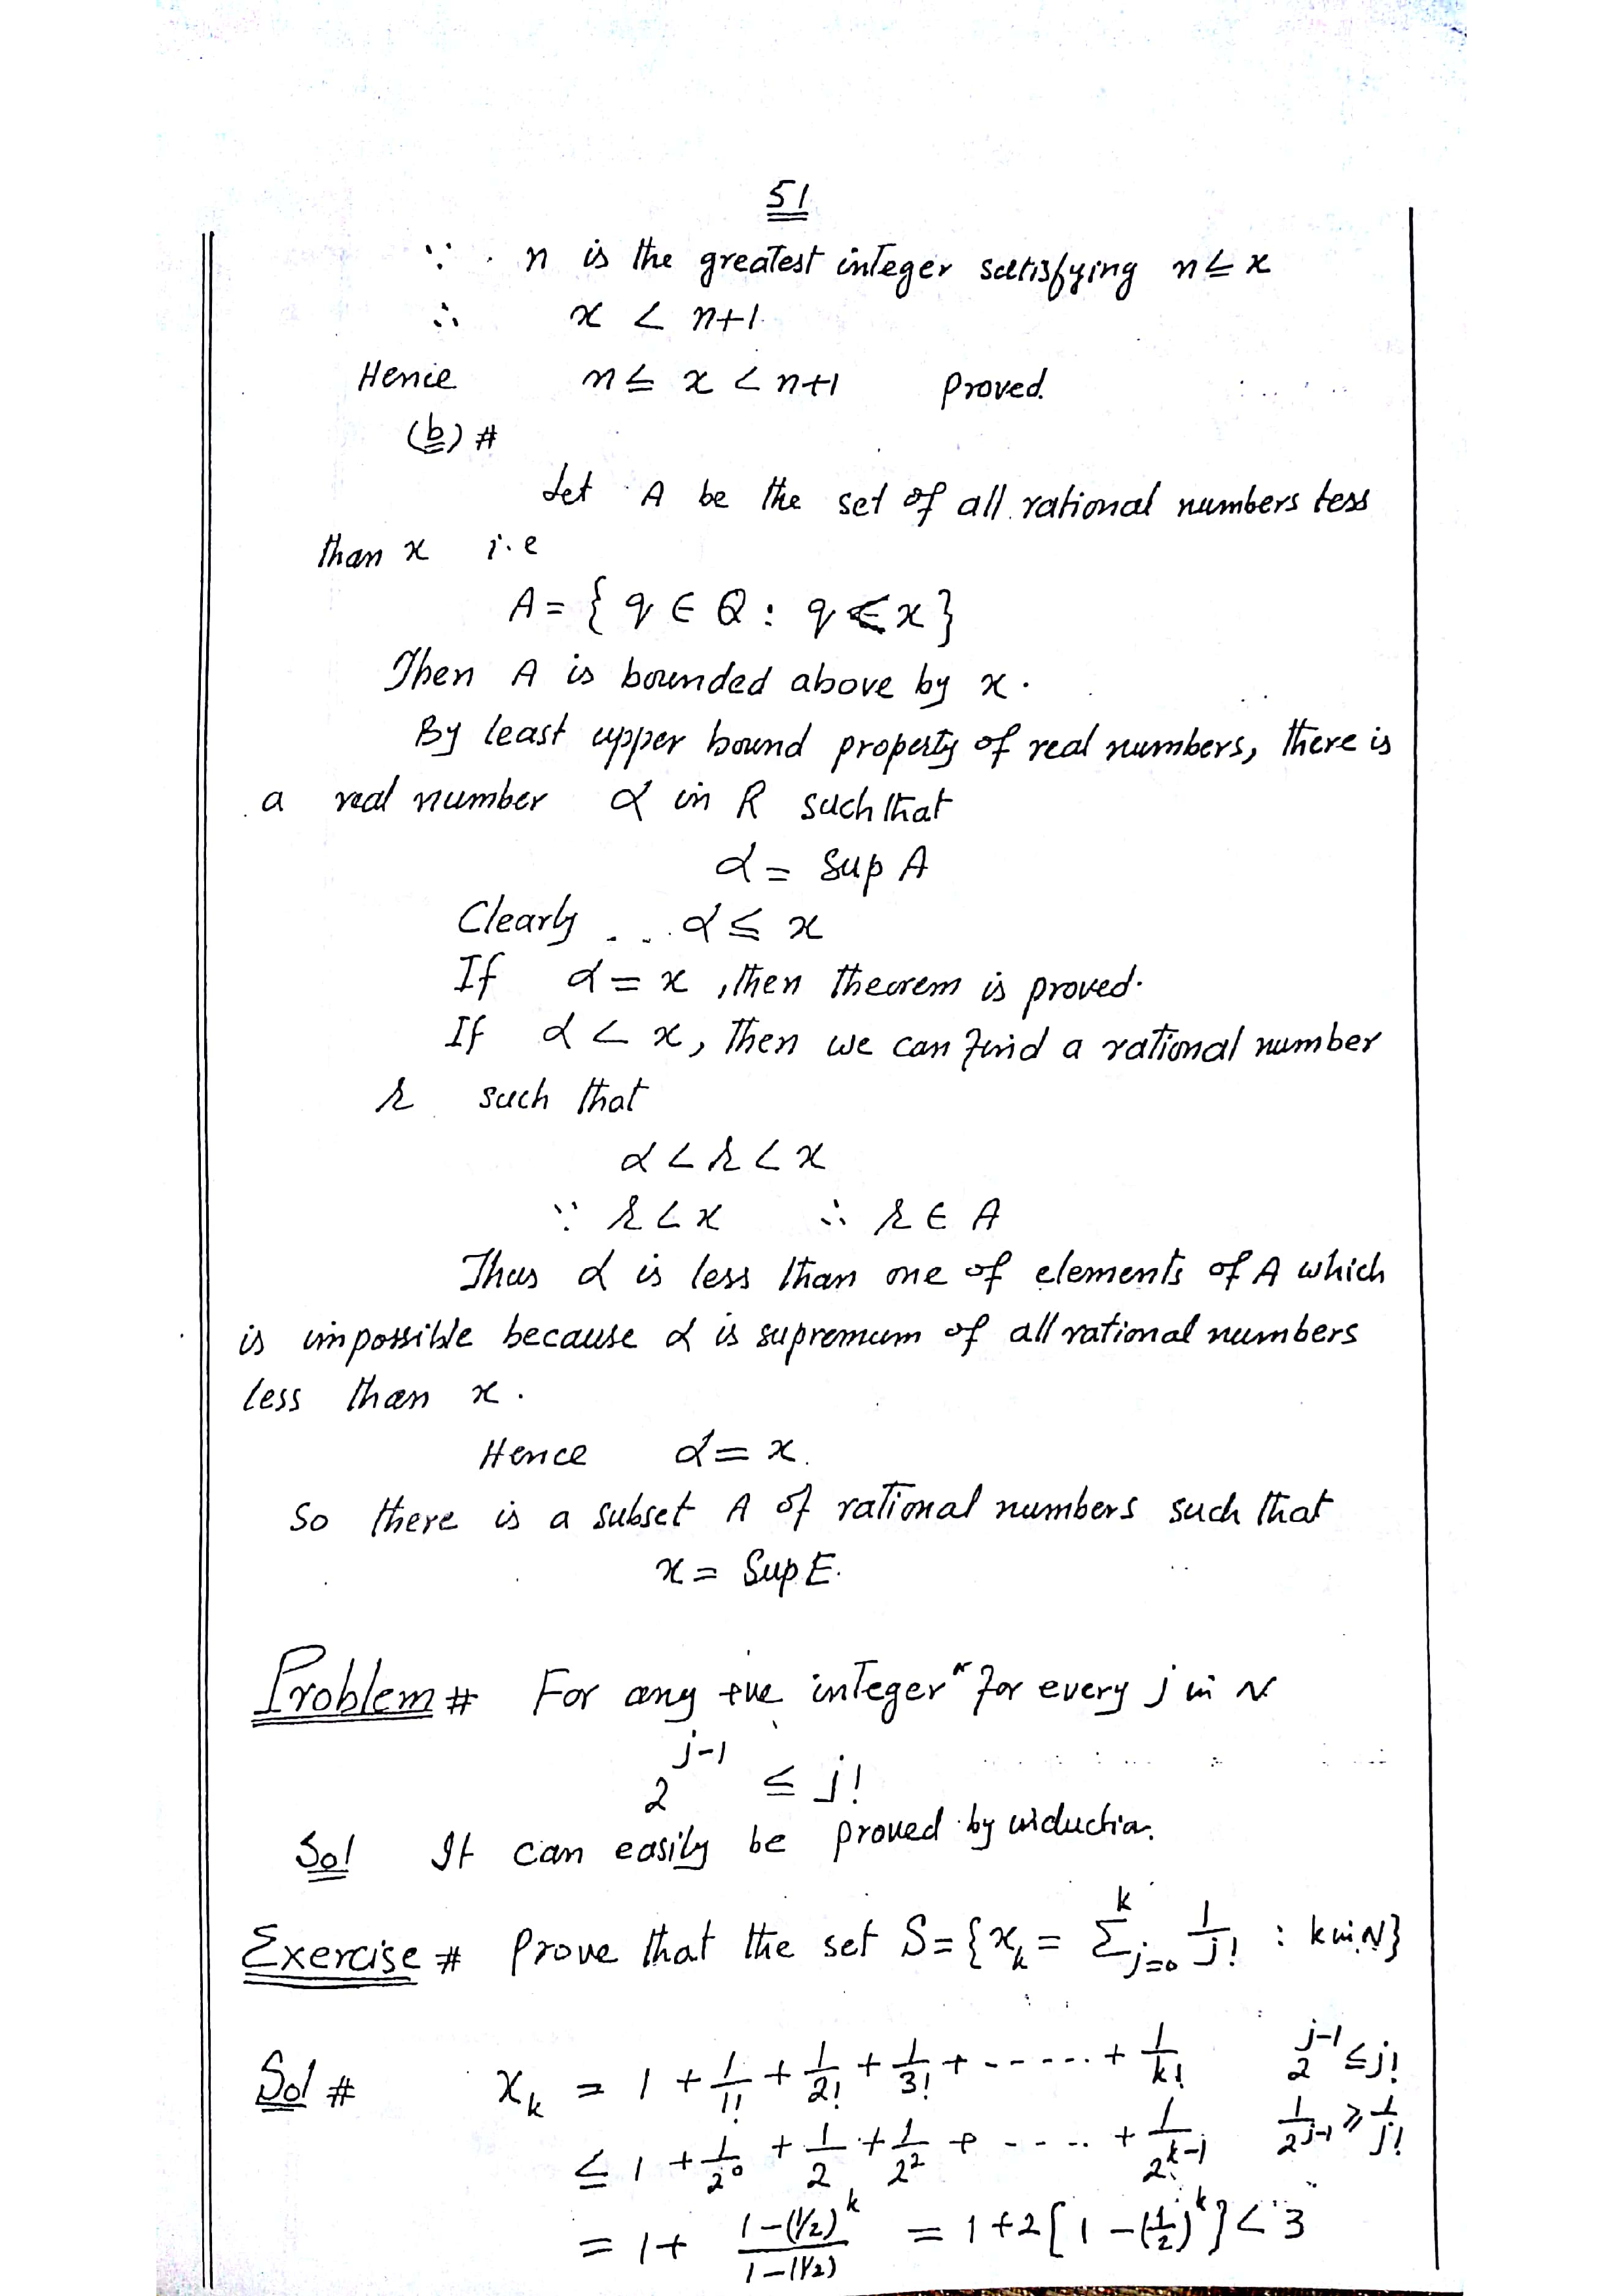 51
∵ n is the greatest integer satisfying n ≤ x
∴ x < n+1
Hence n ≤ x < n+1 Proved.
(b) #
Let A be the set of all rational numbers less
than x i.e
A = { q ∈ Q : q < x }
Then A is bounded above by x.
By least upper bound property of real numbers, there is
a real number α in R such that
α = Sup A
Clearly α ≤ x
If α = x, then theorem is proved.
If α < x, then we can find a rational number
r such that
α < r < x
∵ r < x ∴ r ∈ A
Thus α is less than one of elements of A which
is impossible because α is supremum of all rational numbers
less than x.
Hence α = x.
So there is a subset A of rational numbers such that
x = Sup E.
Problem # For any +ve integer n for every j in N
2^{j-1} ≤ j!
Sol It can easily be proved by induction.
Exercise # Prove that the set S = {x_k = Σ_{j=0}^{k} 1/j! : k in N}
Sol # x_k = 1 + 1/1! + 1/2! + 1/3! + ------ + 1/k! 2^{j-1} ≤ j!
≤ 1 + 1/2^0 + 1/2 + 1/2^2 + ---- + 1/2^{k-1} 1/2^{j-1} ≥ 1/j!
= 1 + (1-(1/2)^k)/(1-(1/2)) = 1 + 2[1 - (1/2)^k] < 3